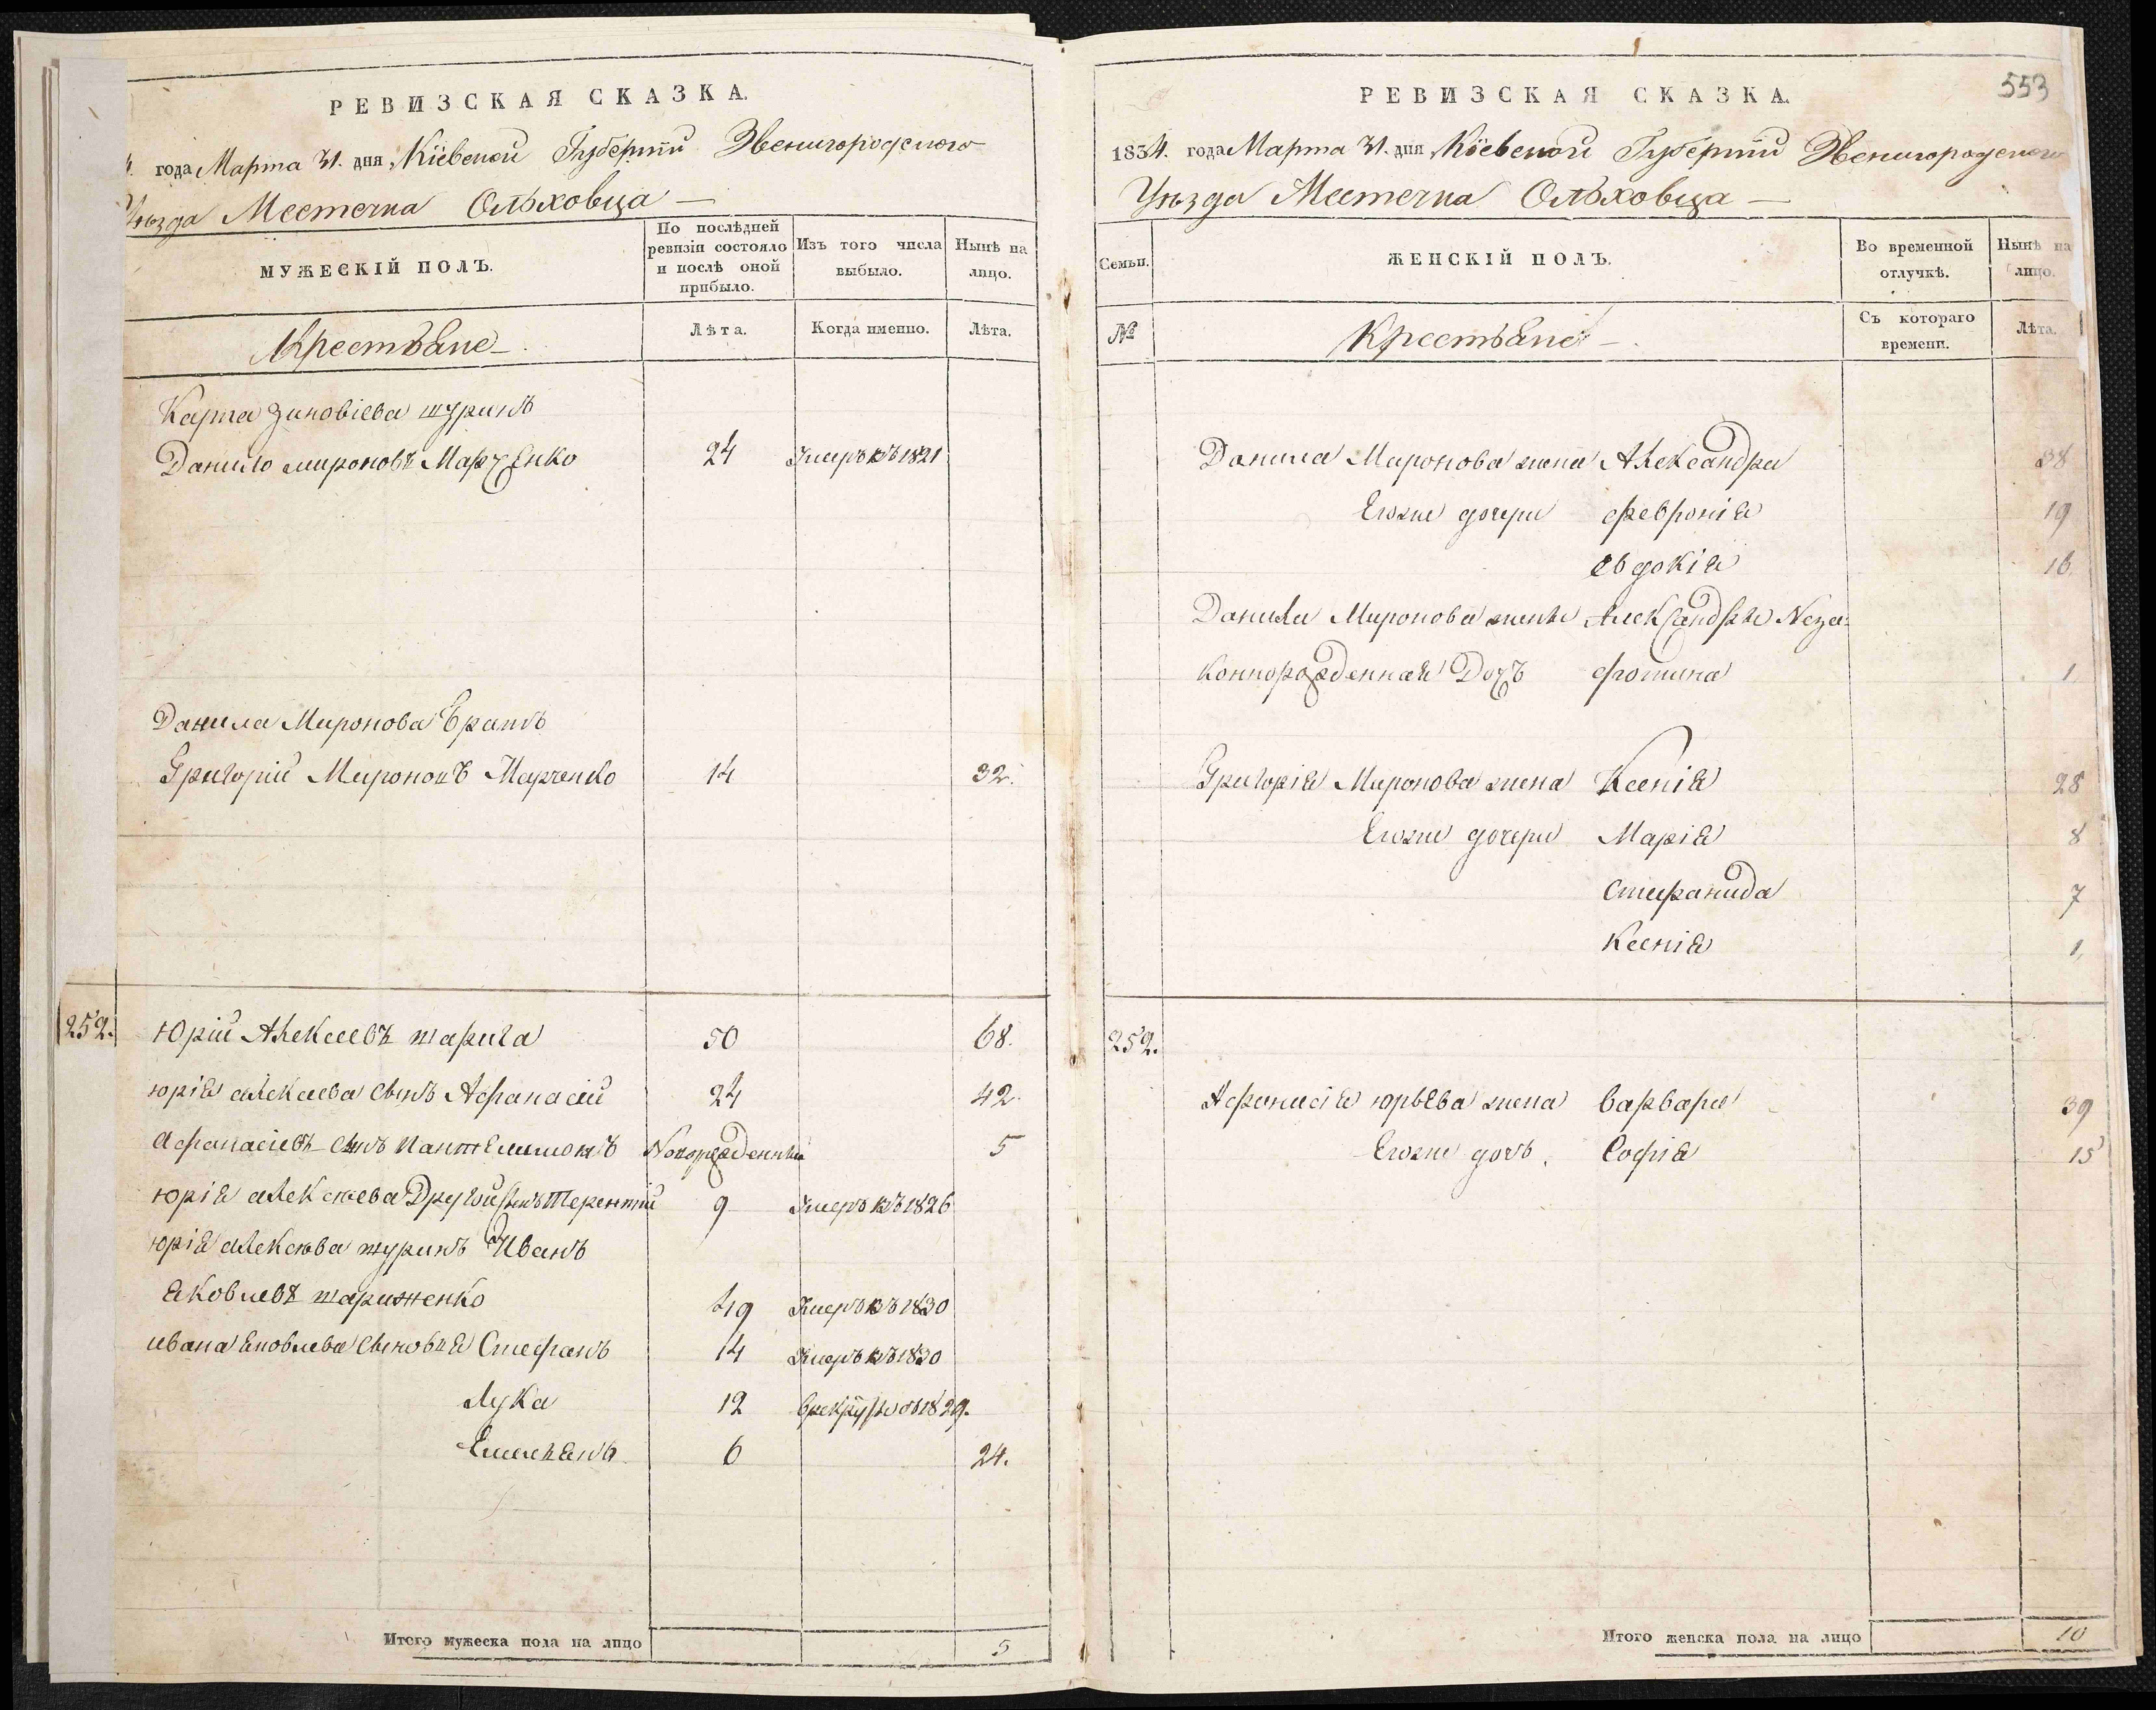 РЕВИЗСКАЯ СКАЗКА.
года Марта 31. дня, Кіевской Губерніи Звенигородского
Уѣзда Местечка Ольховца —
МУЖЕСКІЙ ПОЛЪ.
По послѣдней ревизіи состояло и послѣ оной прибыло.
Изъ того числа выбыло.
Нынѣ на лицо.
Крестьяне
Лѣта.
Когда именно.
Лѣта.
Карпа Зиновіева шуринъ
Данило мироновъ Марченко 24 Умеръ въ 1821
Данила Миронова братъ
Григорій Мироновъ Марченко 14 32.
252. Юрій Алексеевъ 50 68.
юрія алексеева сынъ Афанасій 24 42.
афанасіевъ сынъ Пантелимонъ Новорожденный 5
юрія алексѣева Другой сынъ Терентій 9 Умеръ въ 1826
юрія алексѣва шуринъ Иванъ
яковлевъ 49 Умеръ въ 1830
ивана яковлева сыновья Стефанъ 14 Умеръ въ 1830
Лука 12 1829.
Емельянъ 6 24.
Итого мужеска пола на лицо 5
553
РЕВИЗСКАЯ СКАЗКА.
1834. года Марта 31. дня Кіевской Губерніи Звенигородского
Уѣзда Местечка Ольховца —
Семьи.
ЖЕНСКІЙ ПОЛЪ.
Во временной отлучкѣ.
Нынѣ на лицо.
№
Крестьяне
Съ котораго времени.
Лѣта.
Данила Миронова жена Александра 38
Егоже дочери февронія 19
евдокія 16.
Данила Миронова жены Александры Неза=
коннорожденная Дочъ фотина 1
Григорія Миронова жена Ксенія 28
Егоже дочери Марія 8
Стефанида 7
Ксенія 1,
252.
Афанасія юрьева жена варвара 39
Егоже дочъ. Софія 15
Итого женска пола на лицо 10